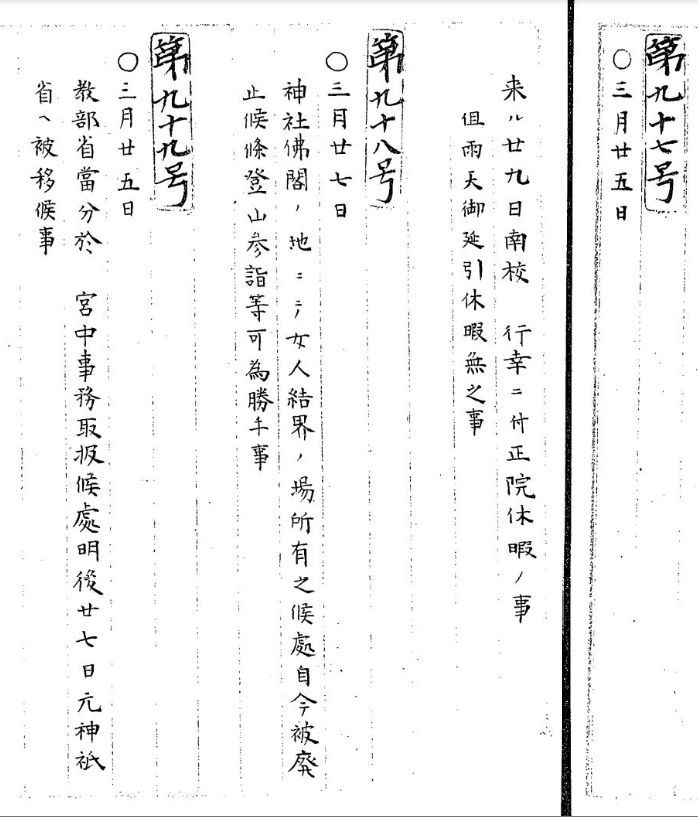 第九十七号
〇三月廿五日
来ル廿九日南校　行幸ニ付正院休暇ノ事
但雨天御延引休暇無之事
第九十八号
〇三月廿七日
神社佛閣ノ地ニテ女人結界ノ場所有之候處自今被廃
止候條登山参詣等可為勝手事
第九十九号
〇三月廿五日
教部省當分於　宮中事務取扱候處明後廿七日元神祇
省ヘ被移候事